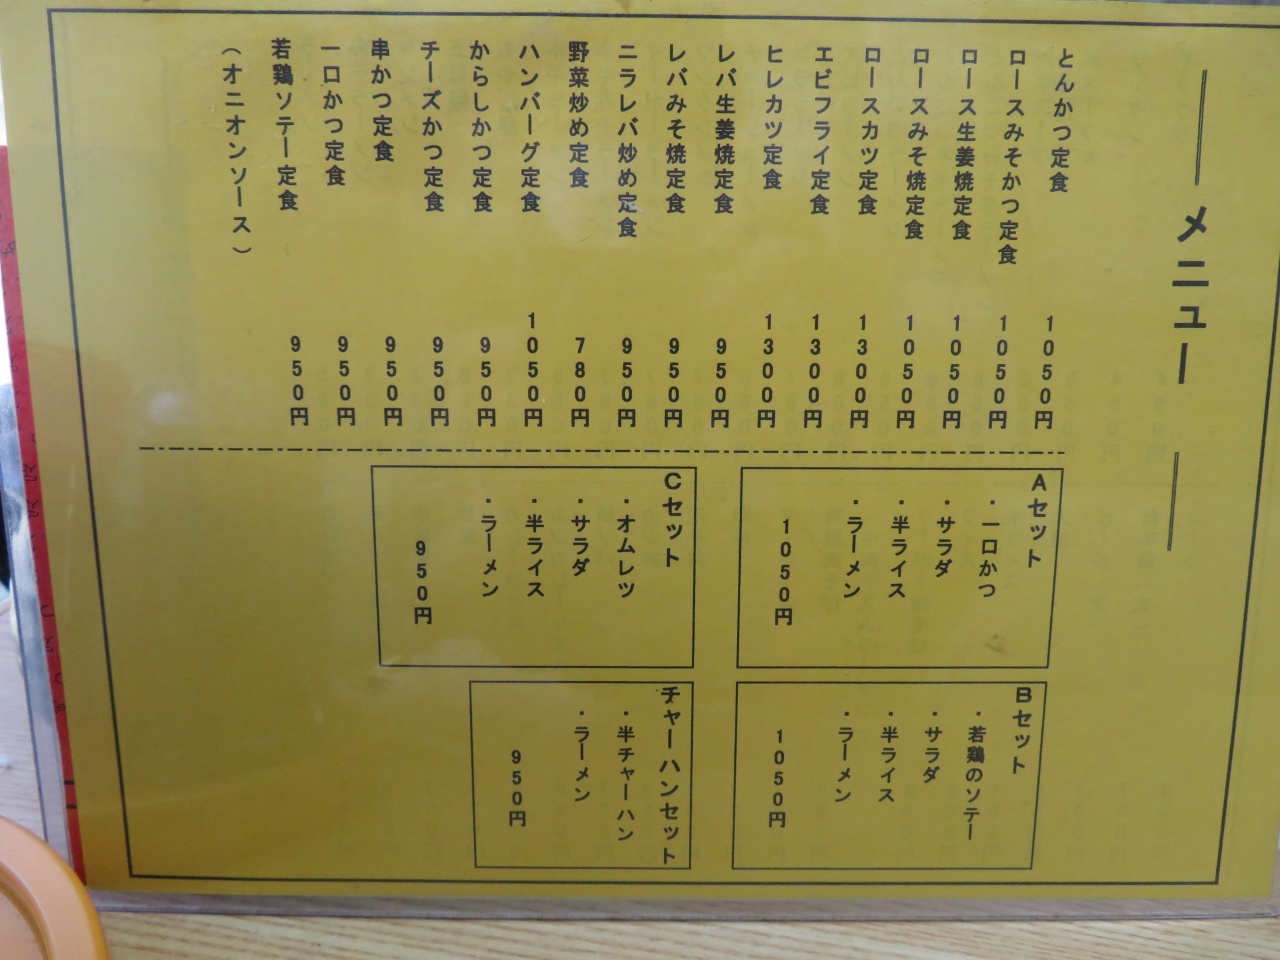 メニュー
とんかつ定食 1050円
ロースみそかつ定食 1050円
ロース生姜焼定食 1050円
ロースみそ焼定食 1050円
ロースカツ定食 1300円
エビフライ定食 1300円
ヒレカツ定食 1300円
レバ生姜焼定食 950円
レバみそ焼定食 950円
ニラレバ炒め定食 950円
野菜炒め定食 780円
ハンバーグ定食 1050円
からしかつ定食 950円
チーズかつ定食 950円
串かつ定食 950円
一口かつ定食 950円
若鶏ソテー定食 950円
(オニオンソース)
Aセット
・一口かつ
・サラダ
・半ライス
・ラーメン
1050円
Bセット
・若鶏のソテー
・サラダ
・半ライス
・ラーメン
1050円
Cセット
・オムレツ
・サラダ
・半ライス
・ラーメン
950円
チャーハンセット
・半チャーハン
・ラーメン
950円